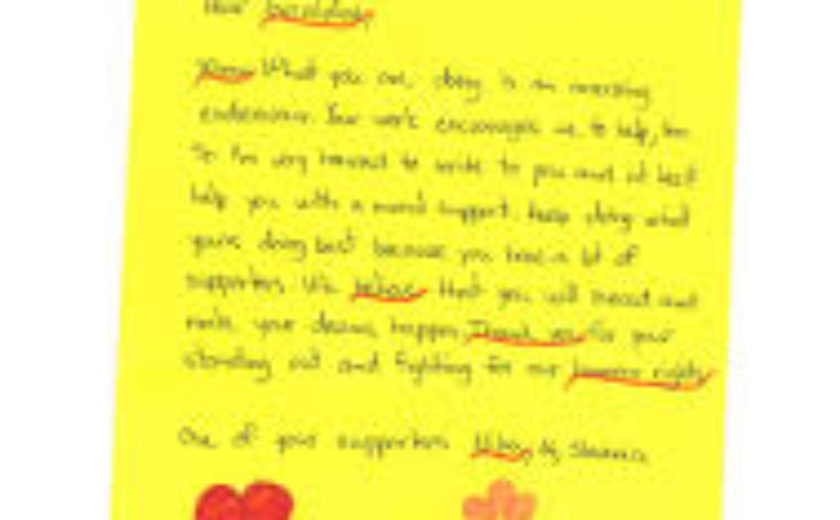 Dear
What you are doing is an amazing
endeavour. Your work encourages us to help, too.
So I'm very honored to write to you and at least
help you with a moral support. Keep doing what
you're doing best because you have a lot of
supporters. We believe that you will succeed and
make your dreams happen. Thank you for your
standing out and fighting for our human rights
One of your supporters Slovenia